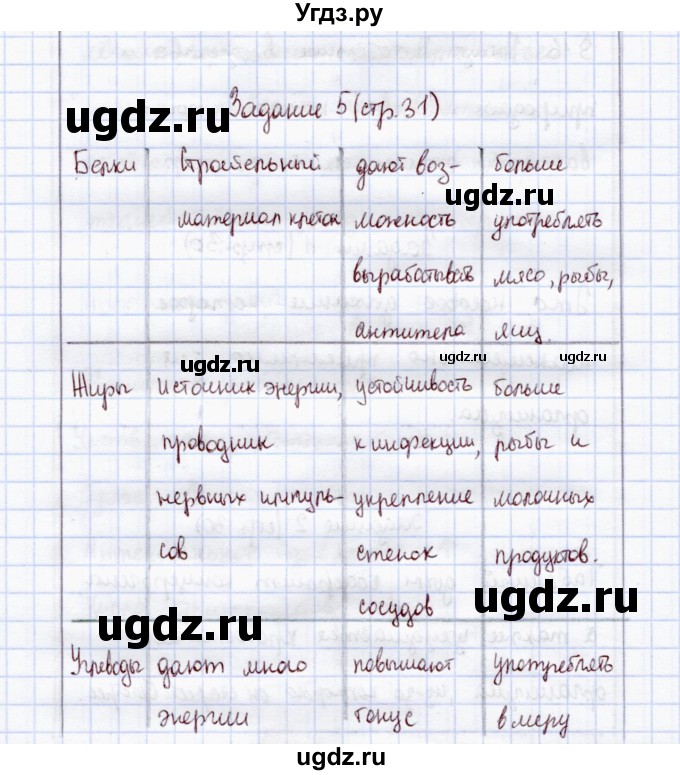 Угдз.ру
Задание 5 (стр. 31)
ugdz.ru
ugdz.ru
Белки Строительный дают воз- больше
ugdz.ru
материал клеток можность употреблять
вырабатывать мясо, рыбы,
антитела яиц.
ugdz.ru ugdz.ru ugdz.ru
Жиры Источник энергии, устойчивость больше
проводник к инфекции, рыбы и
нервных импуль- укрепление молочных
сов стенок продуктов.
сосудов
ugdz.ru ugdz.ru
Углеводы дают много повышают употреблять
энергии тонус в меру
ugdz.ru